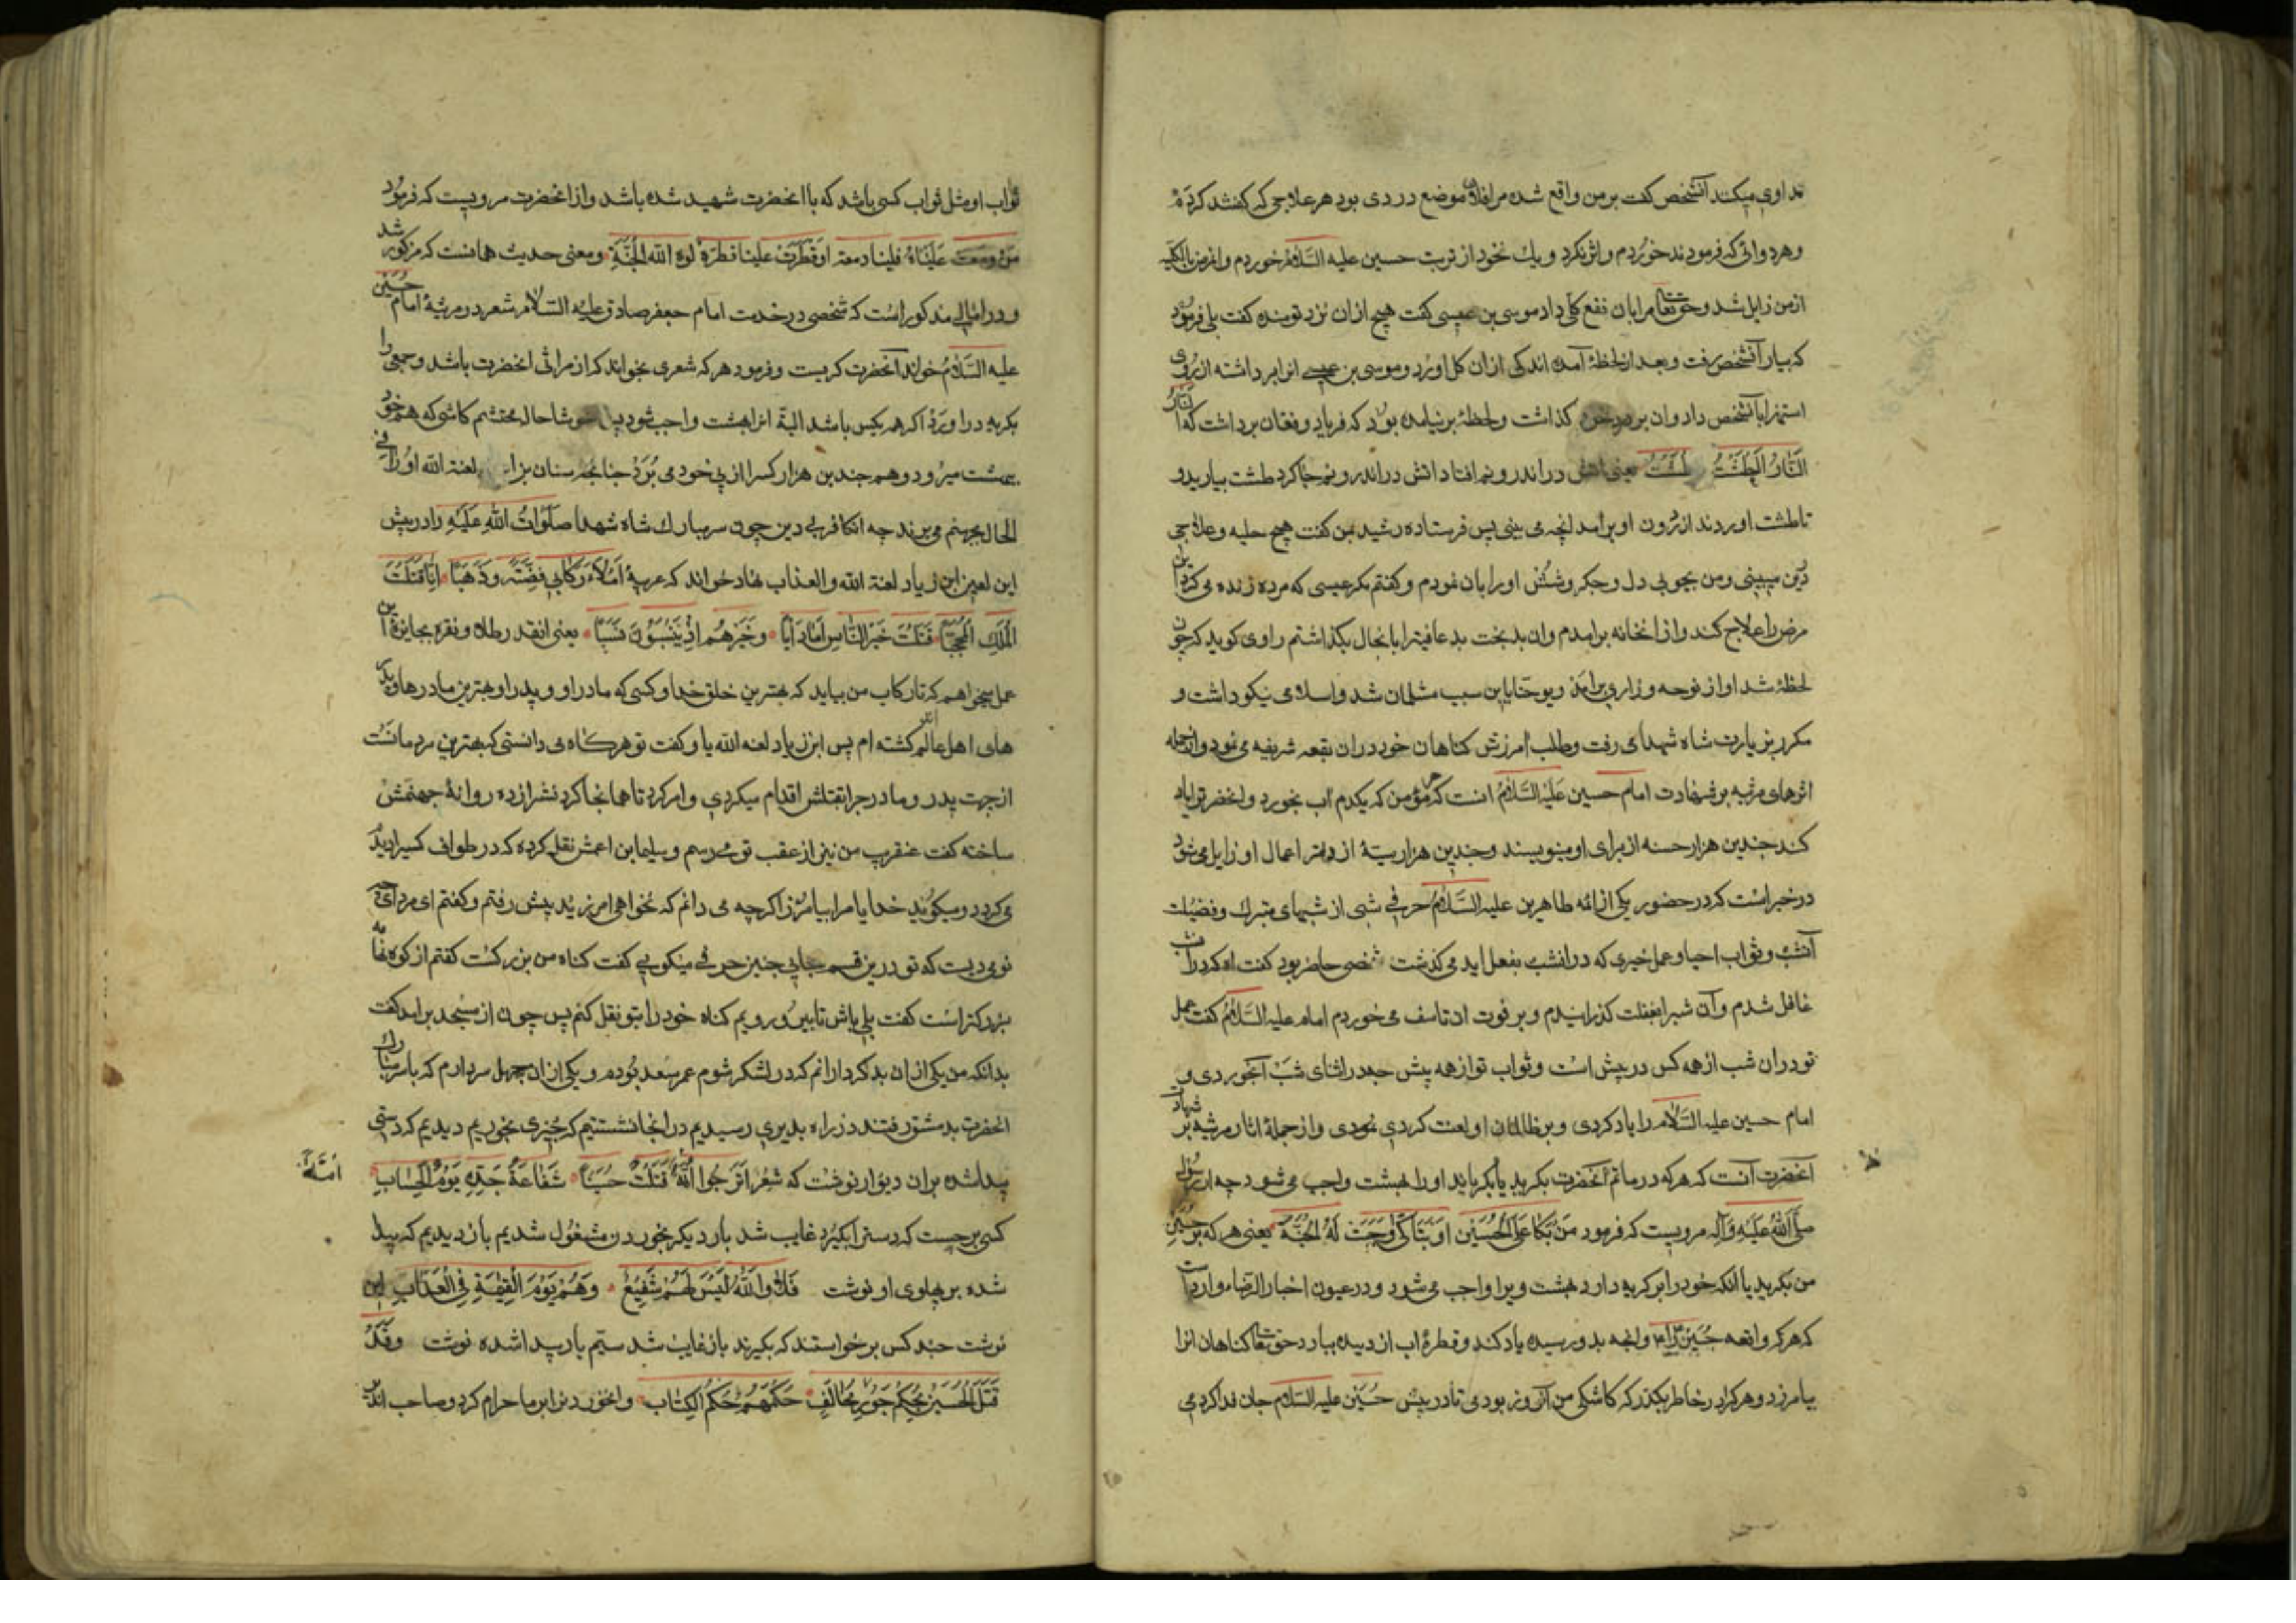 تداوی میکند آنشخص کفت بر من واقع شده مرا فلان موضع دردی بود هر علاجی که کفتند کردم
و هر دوائی که فرمودند خوردم و اثر نکرد و یك نخود از تربت حسین علیه السَّلامُ خوردم و انمرض بالکلیه
از من زایل شد و حق تعا مرا بان نفع کلی داد موسی بن عیسی کفت هیچ ازان نزد تو مانده کفت بلی فرمود
که بیار آنشخص رفت و بعد از لحظهٔ آمده اندکی از ان کل اورد و موسی بن عیسی انرا برداشته از روی
استهزا بآنشخص داد وان بر خود کذاشت و لحظهٔ بر نیامده بود که فریاد و فغان برداشت که النار
النَّارُ الطَّشْتُ الطَّشْتُ یعنی اتش در اندرونم افتاد اتش در اندرونم جا کرد طشت بیارید و
تا طشت اوردند از درون او برآمد انچه می بینی پس فرستاده رشید بمن کفت هیچ حیله و علاجی
درین میبینی و من بچوبی دل و جکر و شش اورا بان نمودم و کفتم مکر عیسی که مرده زنده می کرد این
مرض را علاج کند و از انخانه برامدم و ان بدبخت بد عاقبترا بانحال بکذاشتم راوی کوید که چون
لحظهٔ شد اواز نوحه و زاری برامد و یوحنا باین سبب مسلمان شد و اسلامی نیکو داشت و
مکرر بزیارت شاه شهدا می رفت و طلب امرزش کناهان خود دران بقعه شریفه می نمود و از جمله
اثرهای مرتبه بر شهادت امام حسین عَلَیْهِ السَّلَامُ انست که هر مؤمن که یکدم اب بخورد و انحضرترا یاد
کند چندین هزار حسنه از برای او بنویسند و چندین هزار سیئهٔ از دفتر اعمال او زایل می شود
در خبر است که در حضور یکی از ائمه طاهرین علیه السَّلَامُ حرفی شبی از شبهای متبرك و فضیلت
آنشب و ثواب احیا و عمل خیری که درانشب بفعل اید می کذشت شخصی حاضر بود کفت اه که دران شب
غافل شدم و آن شبرا بغفلت کذرانیدم و بر فوت ان تاسف می خوردم امام علیه السَّلَامُ کفت عمل
تو دران شب از همه کس در پیش است و ثواب تو از همه بیش چه در اثنای شب آبخوردی و
امام حسین علیه السَّلام را یاد کردی و بر ظالمان او لعنت کردی نمودی و از جملهٔ اثار مرثیه بر شهادت
آنحضرت آنست که هر که در ماتم آنحضرت بکرید یا بکریاند اورا بهشت واجب می شود چه از رسول
صَلَّی اللهُ عَلَیْهِ وَآلِهِ مرویست که فرمود مَنْ بَکَا عَلَی الْحُسَیْنِ اَوْ تَبَاکَی وَجَبَتْ لَهُ الْجَنَّةُ یعنی هر که بر حسین
من بکرید یا انکه خودرا بر کریه دارد بهشت ویرا واجب می شود و در عیون اخبار الرضا وارد است
که هر که واقعه حُسَیْن را و انچه بدو رسیده یاد کند و قطرهٔ اب از دیده ببارد حق تعا کناهان انرا
بیامرزد و هر کرا در خاطر بکذرد که کاشکی من آنروز بودمی تا در پیش حُسَیْن علیه السَّلام جان فدا کردمی
ثواب او مثل ثواب کسی باشد که با انحضرت شهید شده باشد و از انحضرت مرویست که فرمود
مَنْ دمعت عَیْنَاهُ فینا دمعة اَوْ قَطَرَتْ عَلَینا قطرَةً الله الْجَنَّةِ و معنی حدیث همانست که مذکور شد
و در امالی مذکور است که شخصی در خدمت امام جعفر صادق علیه السّلام شعر در مرثیهٔ امام حسین
علیه السَّلَامُ خواند آنحضرت کریست و فرمود هر که شعری بخواند که از مراثی انحضرت باشد و جمعی را
بکریه در اورد اکر همه یکس باشد البتة انرا بهشت واجب شود پس خوشا حال محتشم کاشی که هم خود
بهشت میرود و هم چندین هزار کسرا از پی خود می برد چنانچه سنان بزا لعنة الله اورا فی
الحال بجهنم می برند چه انکافر بی دین چون سر مبارك شاه شهدا صَلَوَاتُ اللهِ عَلَیْهِ را در پیش
این لعین ابن زیاد لعنة الله والعذاب نهاد خواند که عربیهٔ اَمْلَاْ رَکَابِی فِضَّتَهً وَ ذَهَبًا اِنَّا قَتَلْتَ
الْمَلِكَ الْمُحَجَّبًا قَتَلْتُ خَیْرَ النَّاسِ اُمًّا وَ اَبًا وَ خَیْرَهُمْ اِذْ یَنْسِبُوْنَ نَسَبًا یعنی انقدر طلا و نقره بجایزهٔ این
عمل میخواهم که تا رکاب من بیاید که بهترین خلق خدا و کسی که مادر او و پدر او بهترین مادرها و پدر
های اهل عالم اند کشته ام پس ابن زیاد لعنه الله با و کفت تو هرکاه می دانستی که بهترین مردمانست
از جهت پدر و مادر چرا بقتلش اقدام میکردی و امر کرد تا همانجا کردنشرا زده روانهٔ جهنمش
ساخته کفت عنقریب من نیز از عقب تو می رسم و سلیمان اعمش نقل کرده که در طواف کسیرا دیدم
می کردد و میکوید خدایا مرا بیامرز اکرچه می دانم که نخواهی امرزید پیش رفتم و کفتم ای مرد ای چه
نومیدیست که تو درین قسم جایی چنین حرفی میکویی کفت کناه من بزرکست کفتم از کوه تهامه
بزرکتر است کفت بلی باش تا بیرون رویم کناه خودرا بتو نقل کنم پس چون از مسجد برامد کفت
بدانکه من یکی از ان بدکردارانم که در لشکر شوم عمر سعد بودم و یکی از ان چهل سردارم که با سر مبارك
انحضرت بدمشق رفتند در راه بدیری رسیدیم در انجا نشستیم که چیزی بخوریم دیدیم که دستی
پیدا شده بران دیوار نوشت که شعر اَتَرْجُوا اُمَّةٌ قَتَلَتْ حُسَیْنًا شَفَاعَةَ جَدِّهِ یَوْمَ الْحِسَابِ
امَّةٌ
کسی برجست که دسترا بکیرد غایب شد بار دیکر بخوردن مشغول شدیم باز دیدیم که پیدا
شده بر پهلوی او نوشت فَلَا وَاللهِ لَیْسَ لَهُمْ شَفِیْعٌ وَهُمْ یَوْمَ الْقِیٰمَةِ فِی الْعَذَابِ این
نوشت چند کس برخواستند که بکیرند باز غایب شد سیم بار پیدا شده نوشت وَقَدْ
قَتَلَ الْحُسَیْنَ بِحُکْمِ جَوْرٍ مُخَالَفٍ حَکْمَهُمْ حُکْمَ الْکِتَابِ و انخوردنرا بر ما حرام کرد و صاحب اندیر